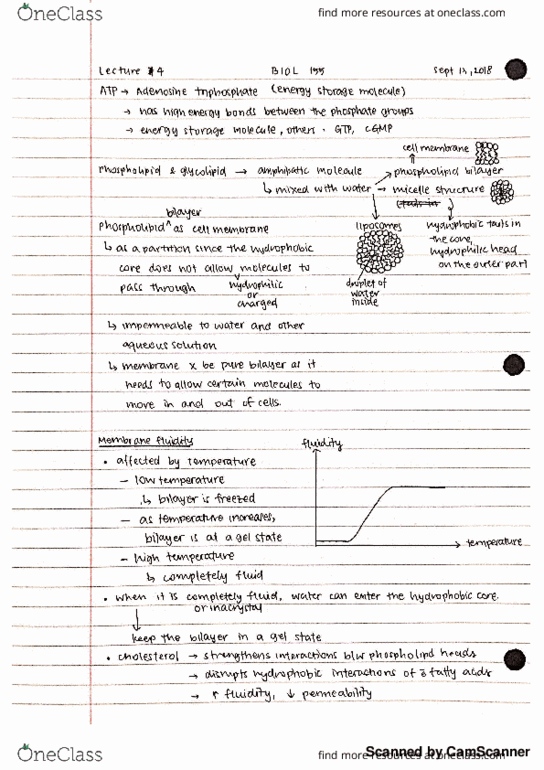 OneClass
find more resources at oneclass.com
Lecture #4 BIOL 155 Sept 13, 2018
ATP → Adenosine triphosphate (energy storage molecule)
→ has high energy bonds between the phosphate groups
→ energy storage molecule, others · GTP, cGMP
cell membrane
phospholipid & glycolipid → amphipatic molecule → phospholipid bilayer
↳ mixed with water → micelle structure
(tails in
bilayer
phospholipid ^ as cell membrane
liposomes
hydrophobic tails in
the core,
hydrophilic head
on the outer part
↳ as a partition since the hydrophobic
core does not allow molecules to
pass through
hydrophilic
or
charged
droplet of
water
inside
↳ impermeable to water and other
aqueous solution
↳ membrane x be pure bilayer as it
needs to allow certain molecules to
move in and out of cells.
Membrane fluidity
fluidity
• affected by temperature
- low temperature
↳ bilayer is freezed
- as temperature increases,
bilayer is at a gel state
temperature
- high temperature
↳ completely fluid
• when it is completely fluid, water can enter the hydrophobic core.
or in a crystal
keep the bilayer in a gel state
• cholesterol → strengthens interactions b/w phospholipid heads
→ disrupts hydrophobic interactions of fatty acids
→ ↑ fluidity, ↓ permeability
OneClass
find more resources at oneclass.com
Scanned by CamScanner